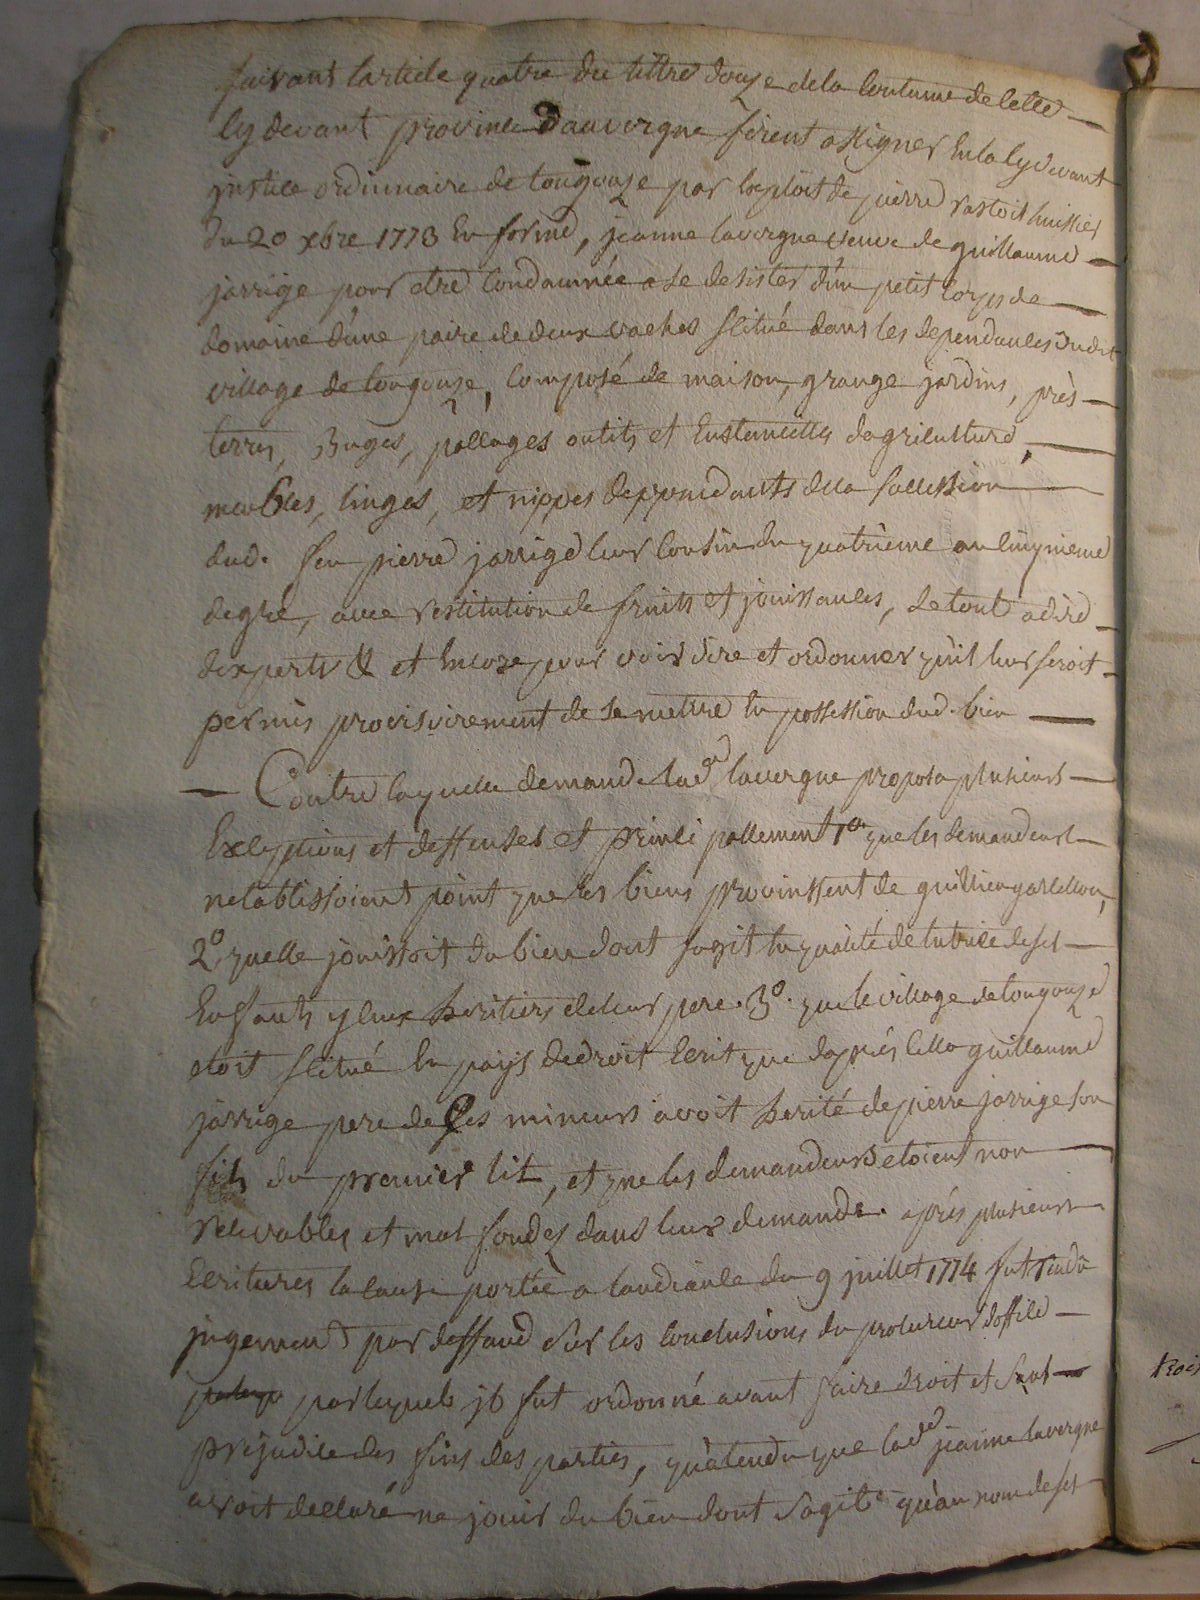 suivant larticle quatre du tittre douze dela Coutume de cette
cy devant province dauvergne firent assigner en la cy devant
justice ordinnaire de tougouze par exploit de pierre rastoit huissier
du 20 xbre 1773 en forme, jeanne lavergne veuve de guillaume
jarrige pour etre Condamnée a se desister d'un petit corps de
domaine d'une paire de deux vaches scitué dans les dependances dudit
village de tougouze, composé de maison, grange jardins, près
terres, Buges, pallages outils et Eustancilles dagriculture,
meubles, linges, et nippes deppendants de la succession
dud. feu pierre jarrige leur cousin du quatrieme au cinqnieme
degré, avec restitution de fruits et jouissances, le tout a dire
dexperts & et encore pour voir dire et ordonner qu'il leur seroit
permis provisoirement de se mettre en possession dud. bien
Contre laquelle demande lad.e lavergne proposa plusieurs
Exceptions et deffenses et princi pallement 1o que les demandeurs
netablissoient point que les biens provinssent de
2o quelle jouissoit du bien dont sagit en qualité de tutrice de ses
Enfants yceux heritiers de leur pere. 3o. que le village de tougouze
etoit scitué en pays de droit Ecrit que daprés cella guillaume
jarrige pere de ses mineurs avoit herité de pierre jarrige son
fils du premier lit, et que les demandeurs etoient non
recevables et mal fondez dans leur demande. aprés plusieurs
Ecritures la cause portée a laudiance du 9 juillet 1774 fut rendu
jugement par deffaud sur les conclusions du procureur doffice
par lequel il fut ordonné avant faire droit et sans
prejudice des fins des parties, qu'atendu que lad.e jeanne lavergne
avoit declaré ne jouir du bien dont sagit qu'au nom de ses